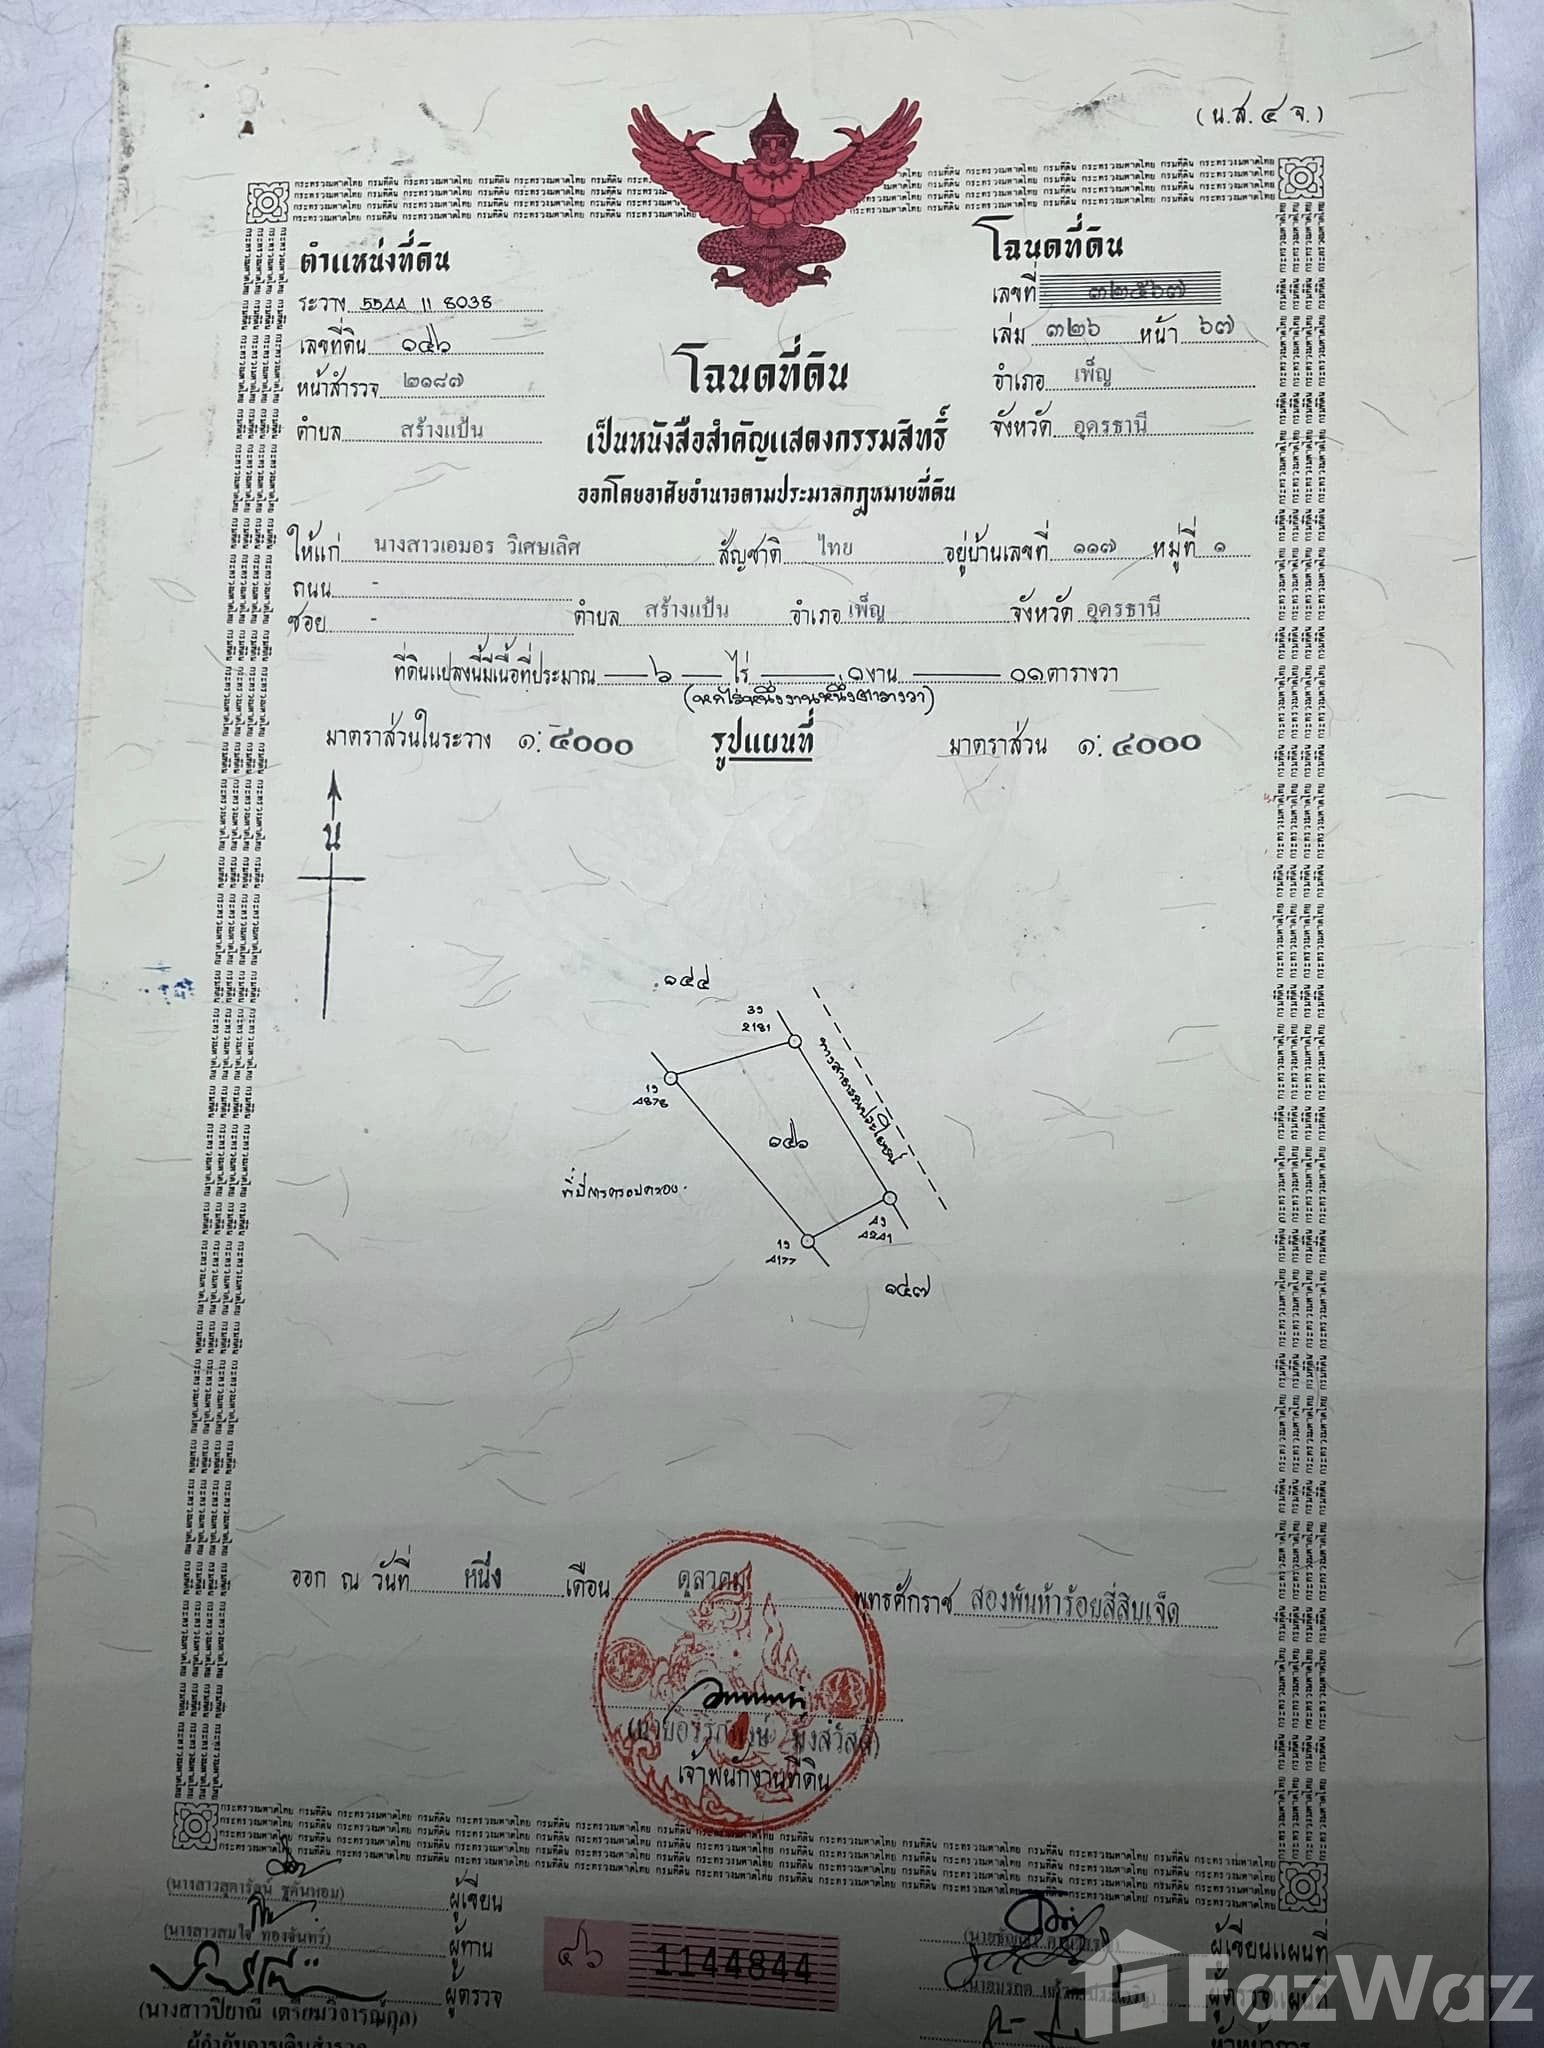 (น.ส.๔ จ.)
ตำแหน่งที่ดิน
ระวาง 5544 II 8038
เลขที่ดิน ๑๔๖
หน้าสำรวจ ๒๑๘๗
ตำบล สร้างแป้น
โฉนดที่ดิน
เลขที่ ๓๒๕๖๗
เล่ม ๓๒๖ หน้า ๖๗
อำเภอ เพ็ญ
จังหวัด อุดรธานี
โฉนดที่ดิน
เป็นหนังสือสำคัญแสดงกรรมสิทธิ์
ออกโดยอาศัยอำนาจตามประมวลกฎหมายที่ดิน
ให้แก่ นางสาวเอมอร วิเศษเลิศ สัญชาติ ไทย อยู่บ้านเลขที่ ๑๑๗ หมู่ที่ ๑
ถนน -
ซอย - ตำบล สร้างแป้น อำเภอ เพ็ญ จังหวัด อุดรธานี
ที่ดินแปลงนี้มีเนื้อที่ประมาณ ๖ ไร่ ๑ งาน ๐๑ ตารางวา
(หกไร่หนึ่งงานหนึ่งตารางวา)
มาตราส่วนในระวาง ๑:๔๐๐๐ รูปแผนที่ มาตราส่วน ๑:๔๐๐๐
น
๑๔๔
39
2181
ทางสาธารณประโยชน์
19
4878
๑๔๖
ที่มีการครอบครอง
49
4241
19
4177
๑๔๗
ออก ณ วันที่ หนึ่ง เดือน ตุลาคม พุทธศักราช สองพันห้าร้อยสี่สิบเจ็ด
เจ้าพนักงานที่ดิน
กระทรวงมหาดไทย กรมที่ดิน
ผู้เขียน
(นางสาวสมใจ ทองจันทร์) ผู้ทาน
ผู้ตรวจ
(นางสาวปิยาณี เตรียมวิจารณ์กุล)
ผู้กำกับการเดินสำรวจ
๔๖ 1144844
ผู้เขียนแผนที่
ผู้ตรวจแผนที่
FazWaz